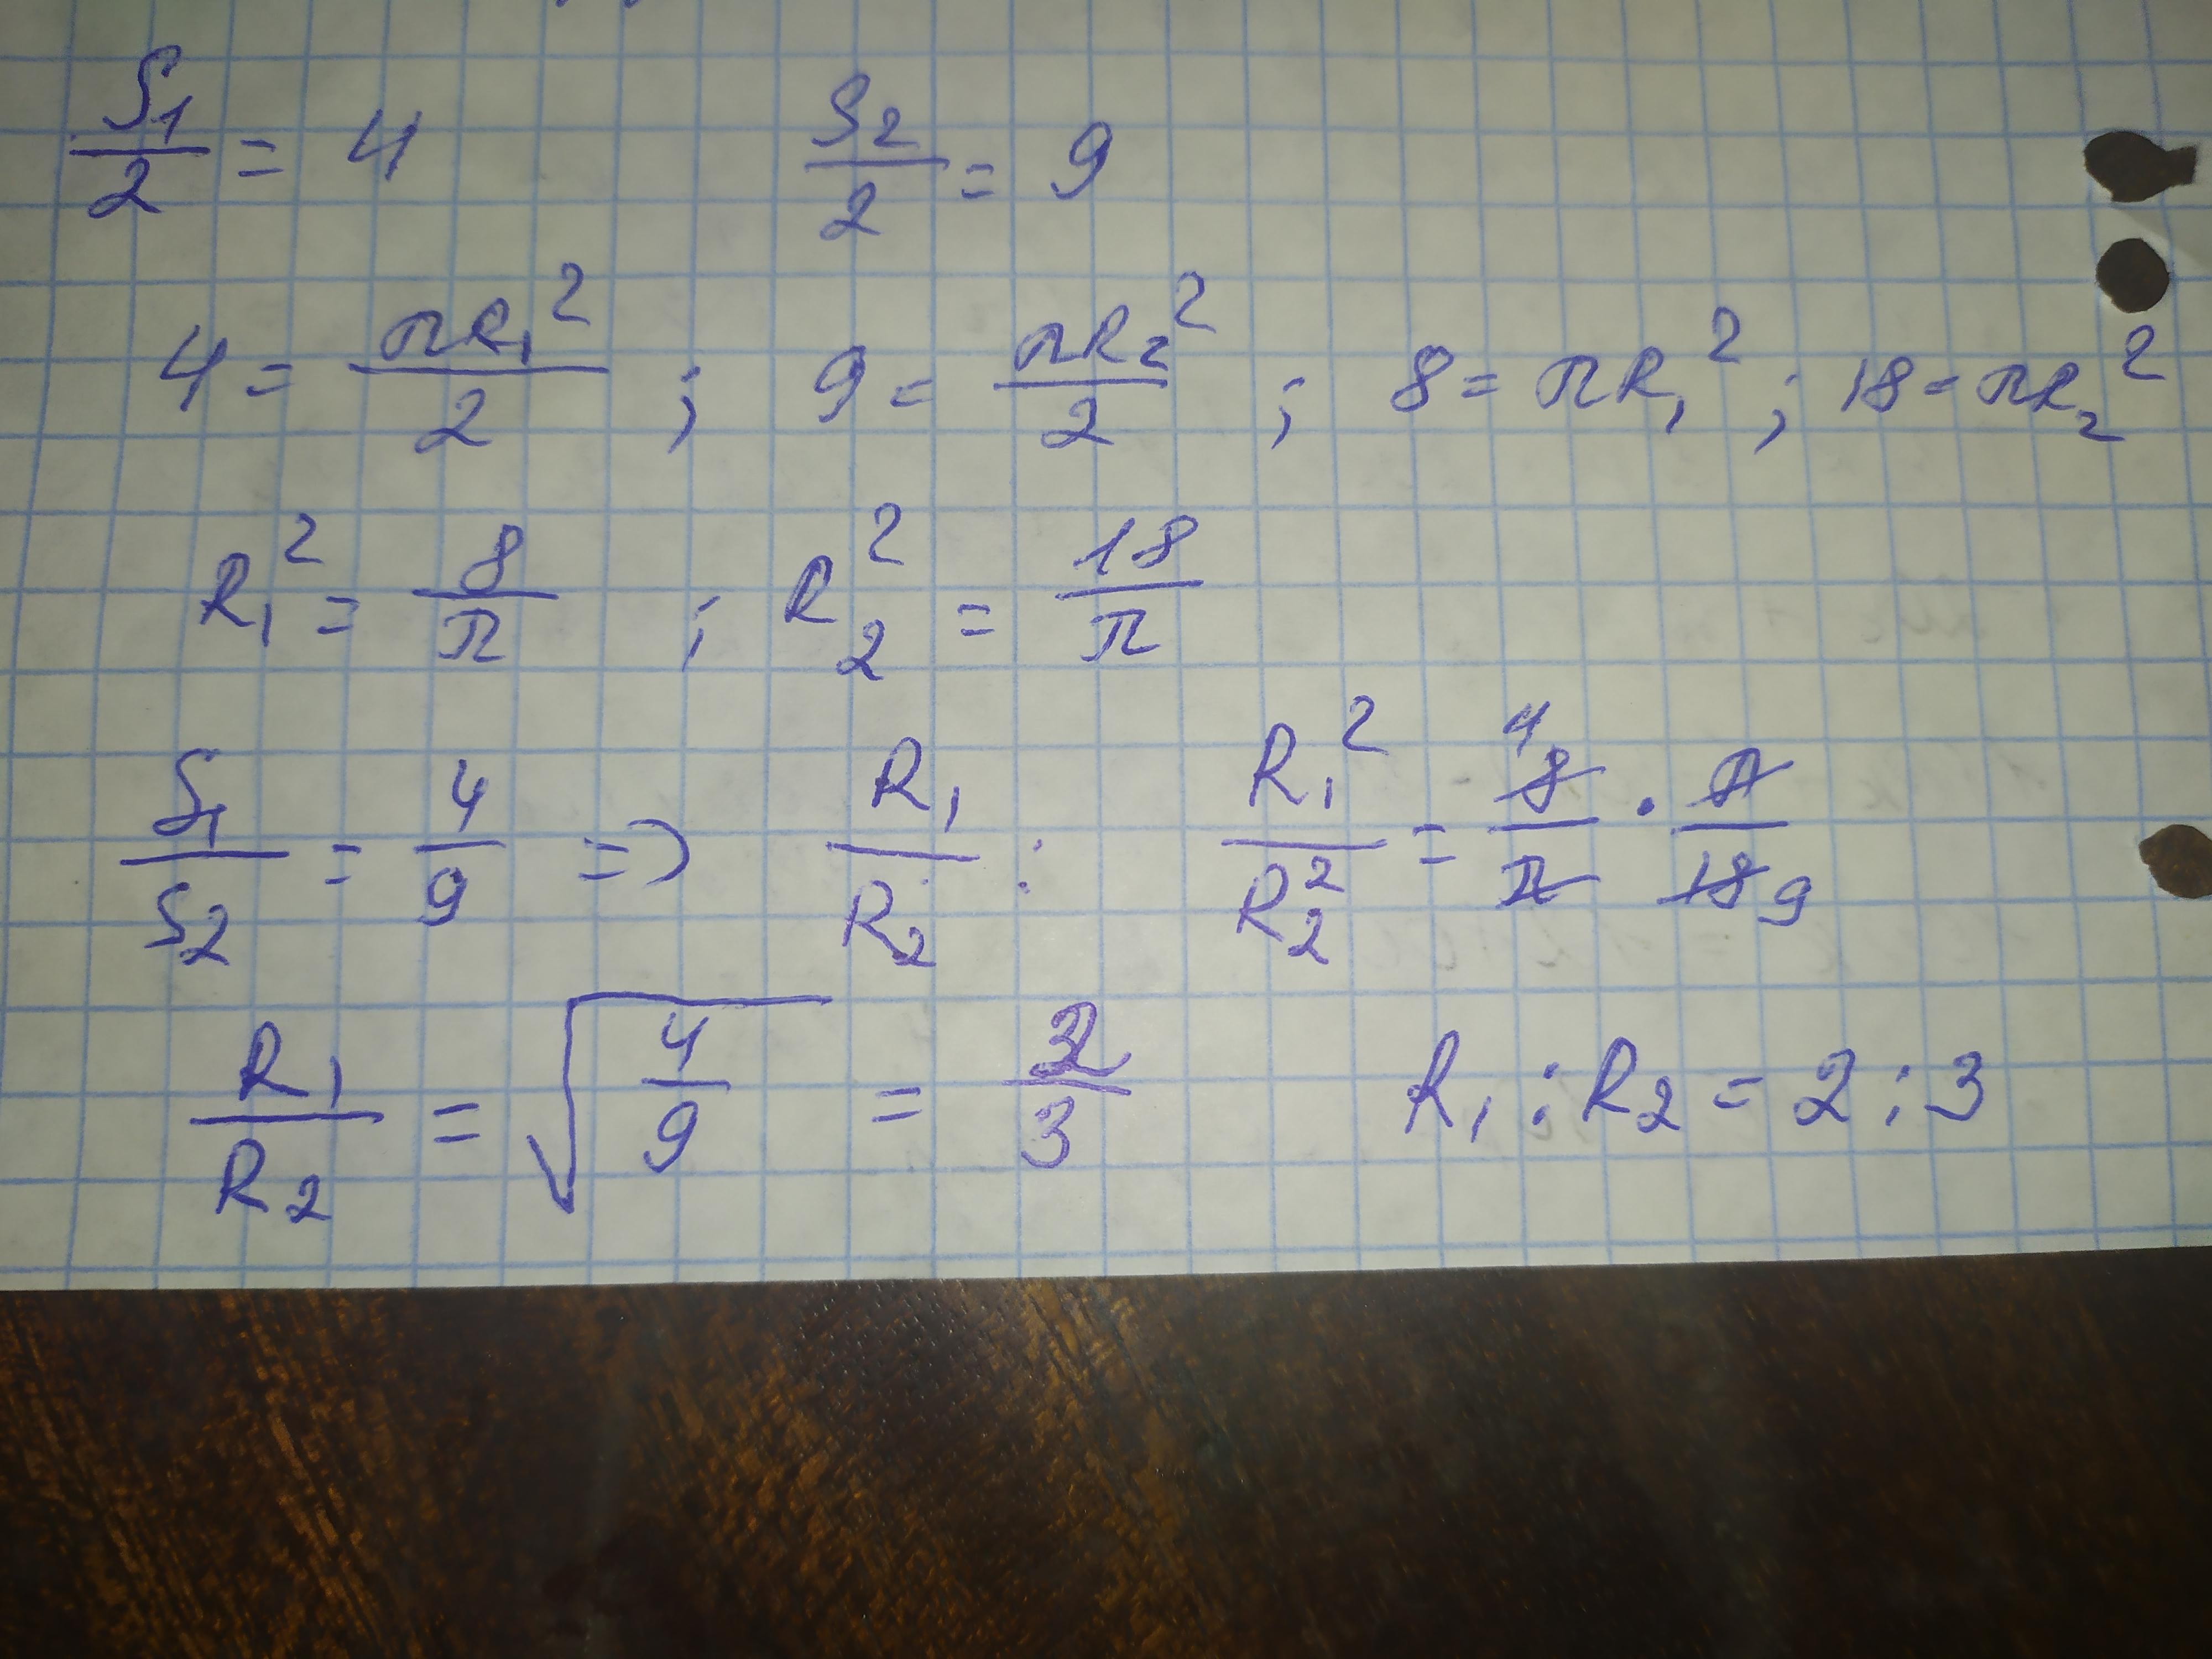 S₁/2 = 4 S₂/2 = 9
4 = πR₁²/2 ; 9 = πR₂²/2 ; 8 = πR₁² ; 18 = πR₂²
R₁² = 8/π ; R₂² = 18/π
S₁/S₂ = 4/9 => R₁/R₂ : R₁²/R₂² = 8/π · π/18 4 9
R₁/R₂ = √(4/9) = 2/3 R₁ : R₂ = 2 : 3